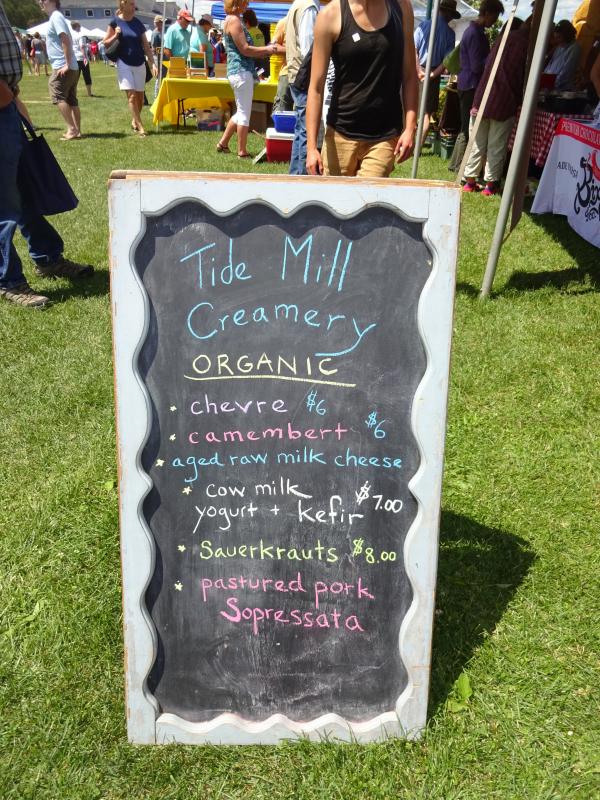 Tide Mill
Creamery
ORGANIC
* chevre $6
* camembert $6
* aged raw milk cheese
* cow milk
yogurt + kefir $7.00
* Sauerkrauts $8.00
* pastured pork
Sopressata